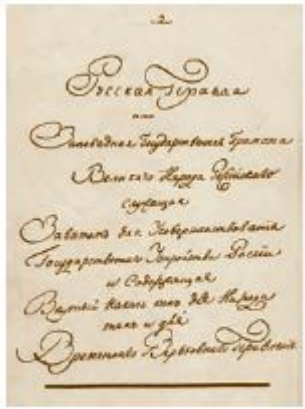 2
Русская Правда
или
Заповедная Государственная Грамота
Великаго Народа Россійскаго
служащая
Завѣтомъ для Усовершенствованія
Государственнаго Устройства Россіи
и Содержащая
Вѣрный Наказъ какъ для Народа
такъ и для
Временнаго Верховнаго Правленія